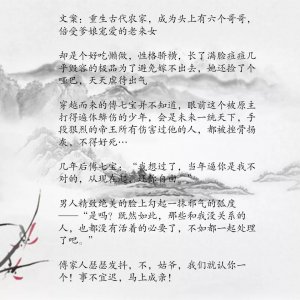 文案：重生古代农家，成为头上有六个哥哥，
倍受爹娘宠爱的老来女
却是个好吃懒做，性格骄横，长了满脸痘痘几
乎毁容的极品为了避免嫁不出去，她还捡了个
哑巴，天天虐待出气
穿越而来的傅七宝并不知道，眼前这个被原主
打得遍体鳞伤的少年，会是未来一统天下，手
段狠烈的帝王所有伤害过他的人，都被挫骨扬
灰，不得好死…
几年后傅七宝：“我想过了，当年逼你是我不
对的，从现在
男人精致绝美的脸上勾起一抹邪气的弧度
——“是吗？既然如此，那些和我没关系的
人，也都没有活着的必要了，不如都一起处理
了吧。”
傅家人瑟瑟发抖，不，姑爷，我们就认你一
个！事不宜迟，马上成亲！